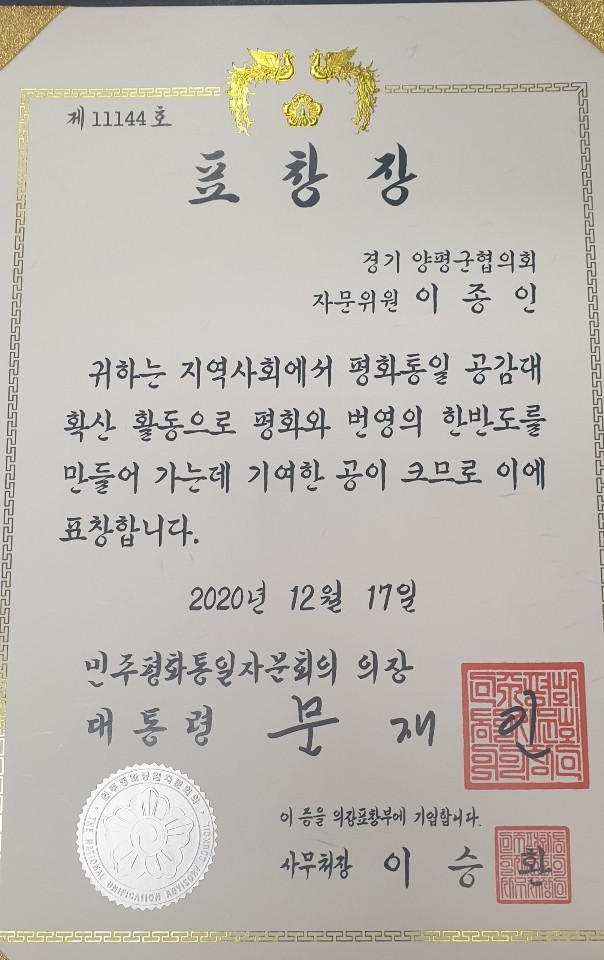 제 11144 호
표 창 장
경기 양평군협의회
자문위원 이 종 인
귀하는 지역사회에서 평화통일 공감대
확산 활동으로 평화와 번영의 한반도를
만들어 가는데 기여한 공이 크므로 이에
표창합니다.
2020년 12월 17일
민주평화통일자문회의 의장
대 통 령 문 재 인
이 증을 의장표창부에 기입합니다.
사무처장 이 승 환
민주평화통일자문회의
THE NATIONAL UNIFICATION ADVISORY COUNCIL